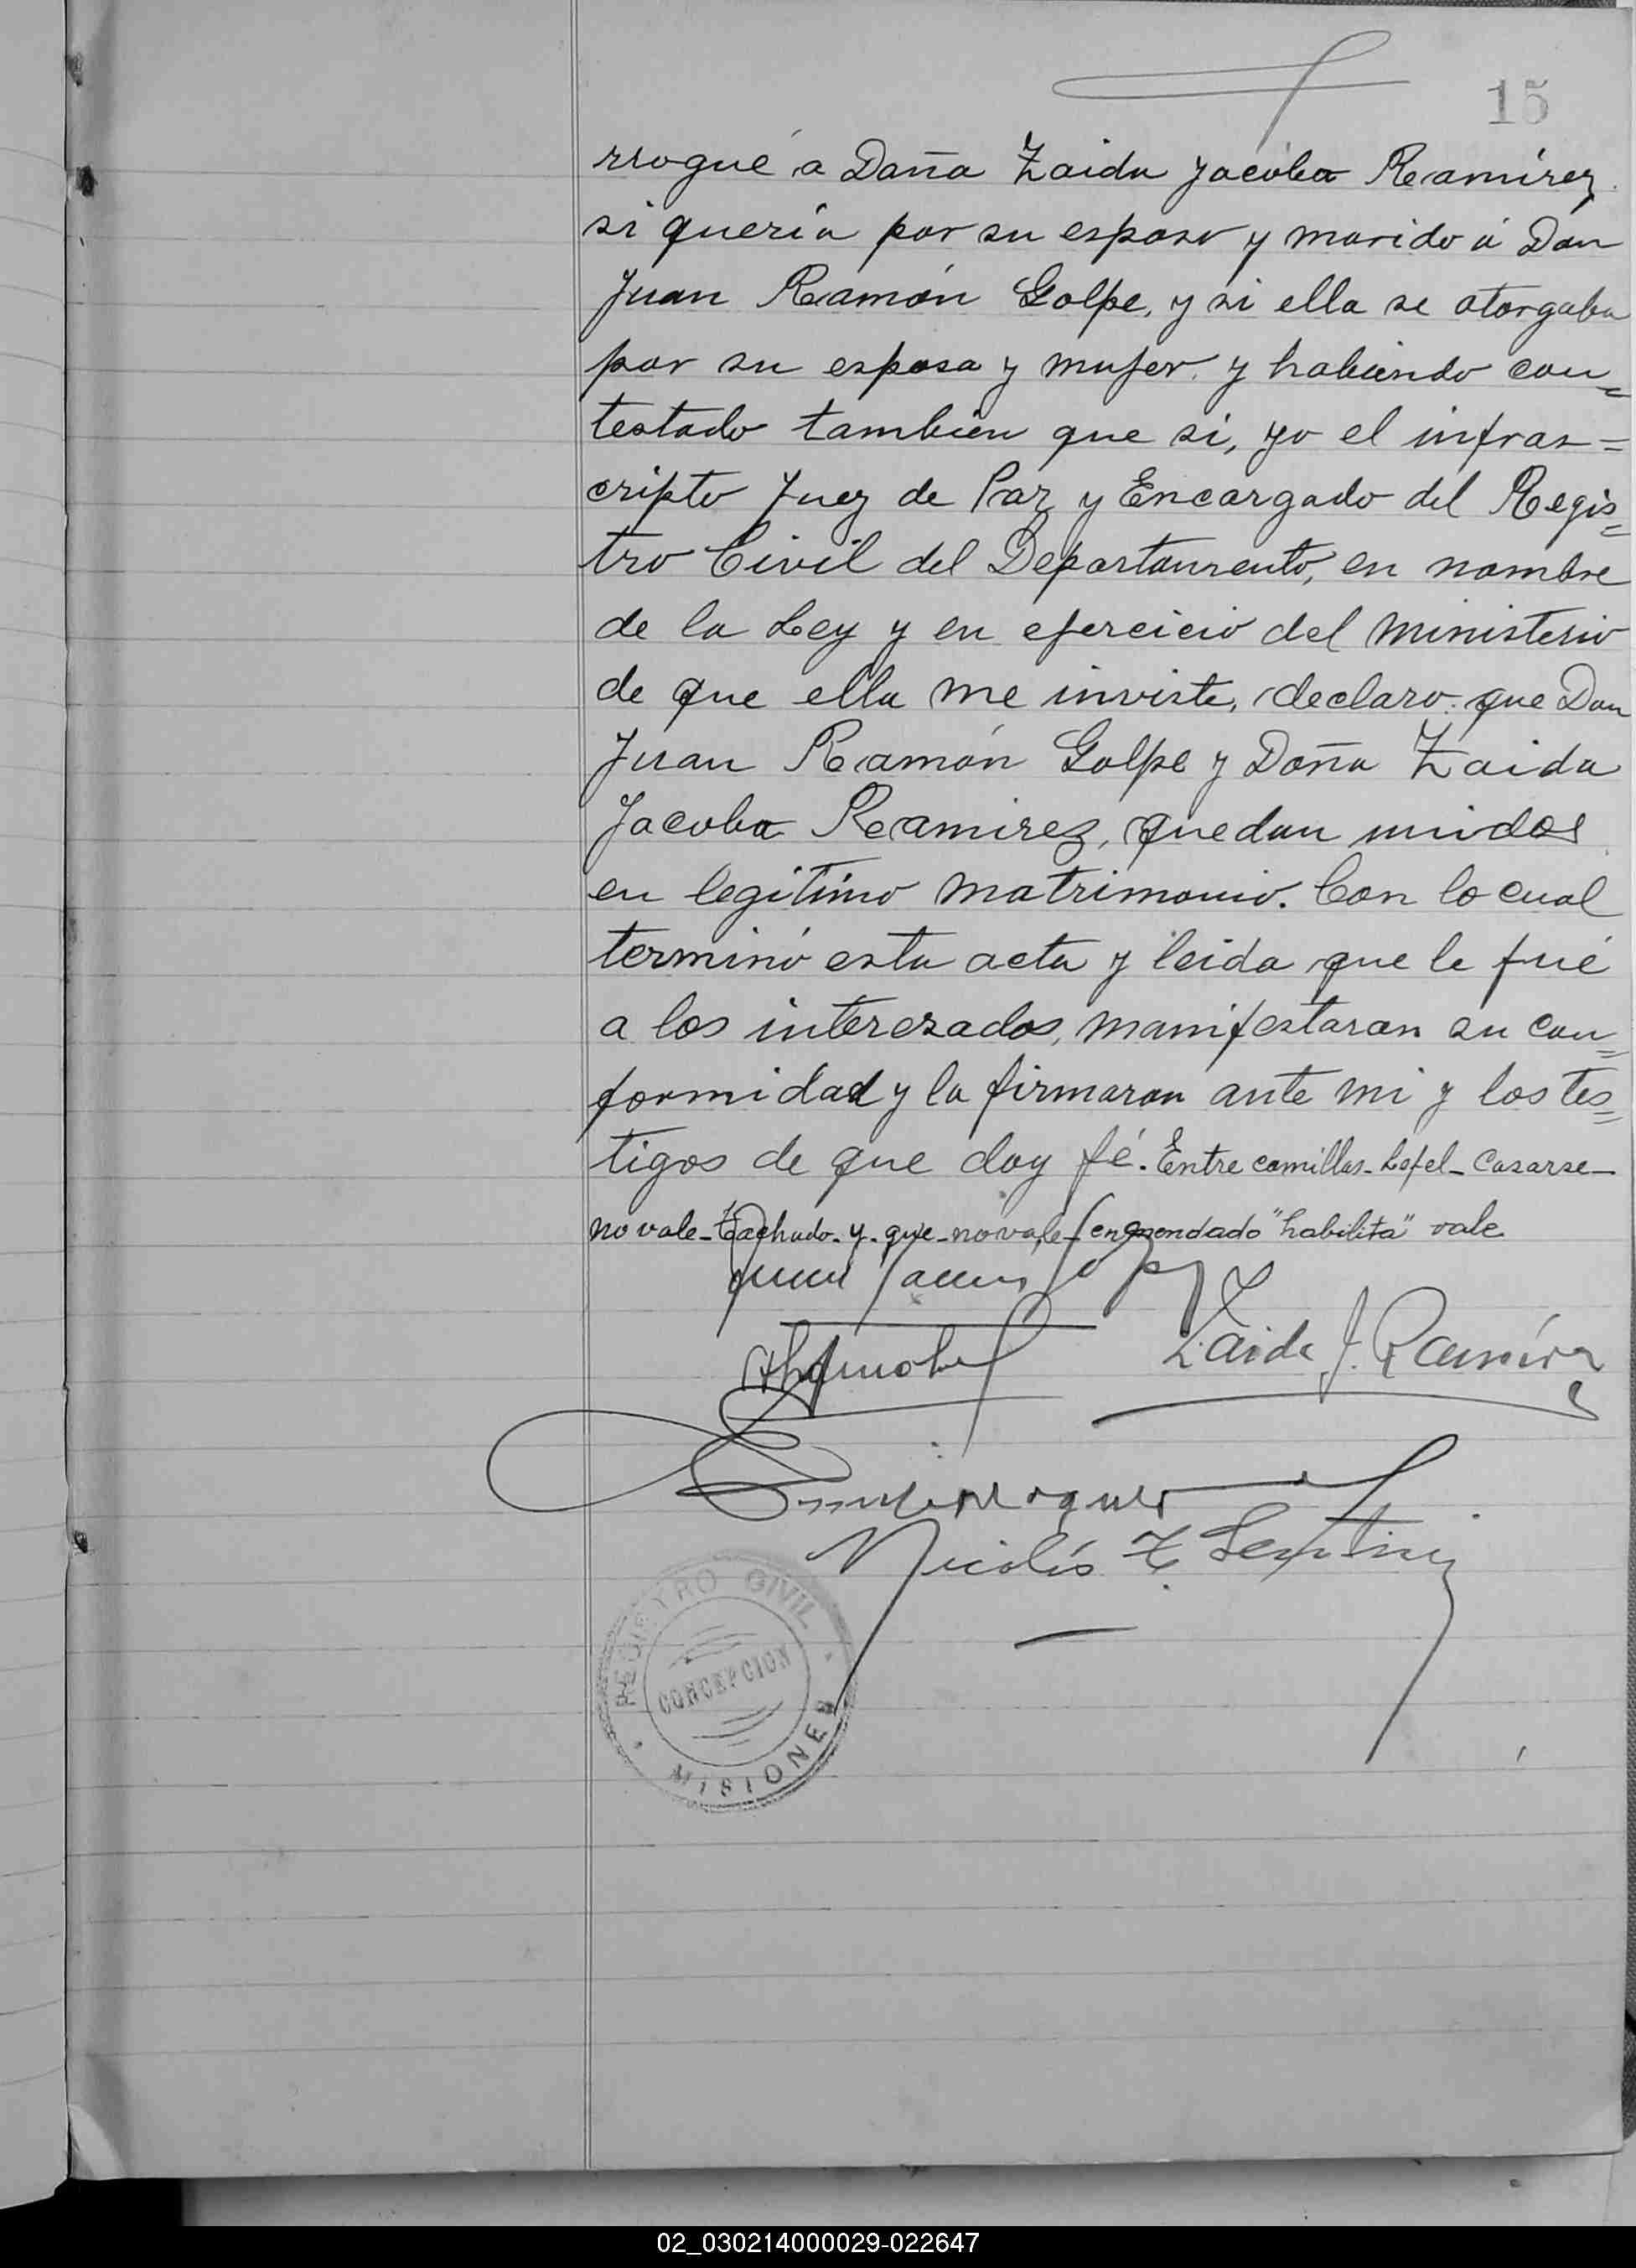 15
rrogué a Doña Zaida Jacoba Ramírez
si quería por su esposo y marido á Don
Juan Ramón Golpe, y si ella se otorgaba
por su esposa y mujer y habiendo con=
testado tambien que si, yo el infras=
cripto Juez de Paz y Encargado del Regis=
tro Civil del Departamento, en nombre
de la Ley y en ejercicio del ministerio
de que ella me inviste, declaro: que Don
Juan Ramón Golpe y Doña Zaida
Jacoba Ramirez, quedan unidos
en legítimo matrimonio. Con lo cual
terminó esta acta y leida que le fué
a los interezados, manifestaron su con=
formidad y la firmaron ante mi y los tes=
tigos de que doy fé. Entre comillas - casarse -
no vale - tachado - y - que - no vale - enmendado "habilita" vale
Juan Ramón Golpe
Zaida J. Ramírez
Nicolás
REGISTRO CIVIL
CONCEPCION
MISIONES
02_030214000029-022647